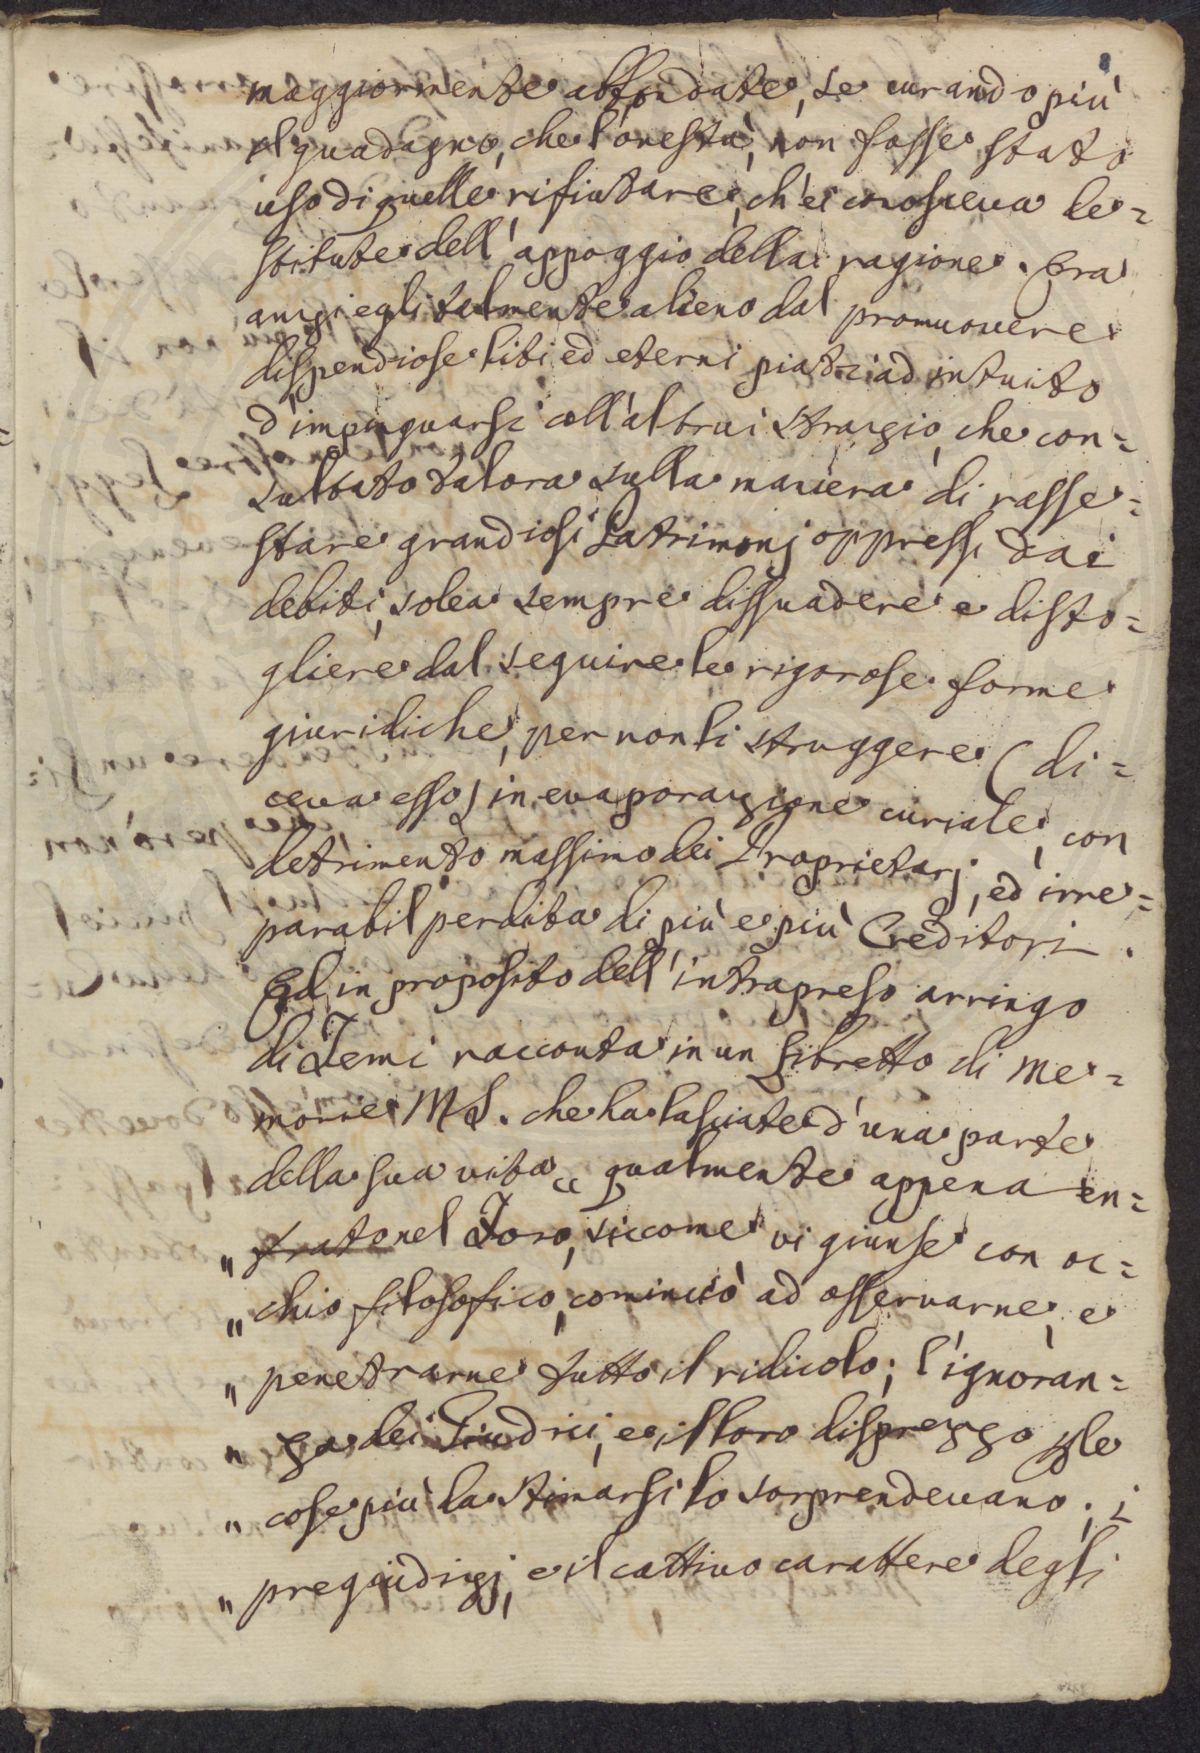 maggiormente affondate, se curando più
il guadagno, che l'onestà, non fosse stato
uso di quelle rifiutare, ch'ei conosceva de=
stitute dell'appoggio della ragione. Era
anzi egli talmente alieno dal promuovere
dispendiose liti ed eterni piati ad intuito
d'impinguarsi coll'altrui strazio, che con=
sultato talora sulla maniera di rasse=
stare grandiosi Patrimonj oppressi dai
debiti, solea sempre dissuadere e disto=
gliere dal seguire le rigorose forme
giuridiche, per non li struggere (di=
ceva esso) in evaporazione curiale, con
detrimento massimo dei Proprietarj, ed irre=
parabil perdita di più e più Creditori.
Ed in proposito dell'intrapreso arringo
di Temi racconta in un Libretto di Me=
morie MS. che ha lasciate d'una parte
della sua vita „ qualmente appena en=
„ trato nel Foro, siccome vi giunse con oc=
„ chio filosofico, cominciò ad osservarne, e
„ penetrarne tutto il ridicolo; l'ignoran=
„ za dei Giudici, e il loro disprezzo ple
„ cose più da stimarsi lo sorprendevano; i
„ pregiudizj, e il cattivo carattere degli